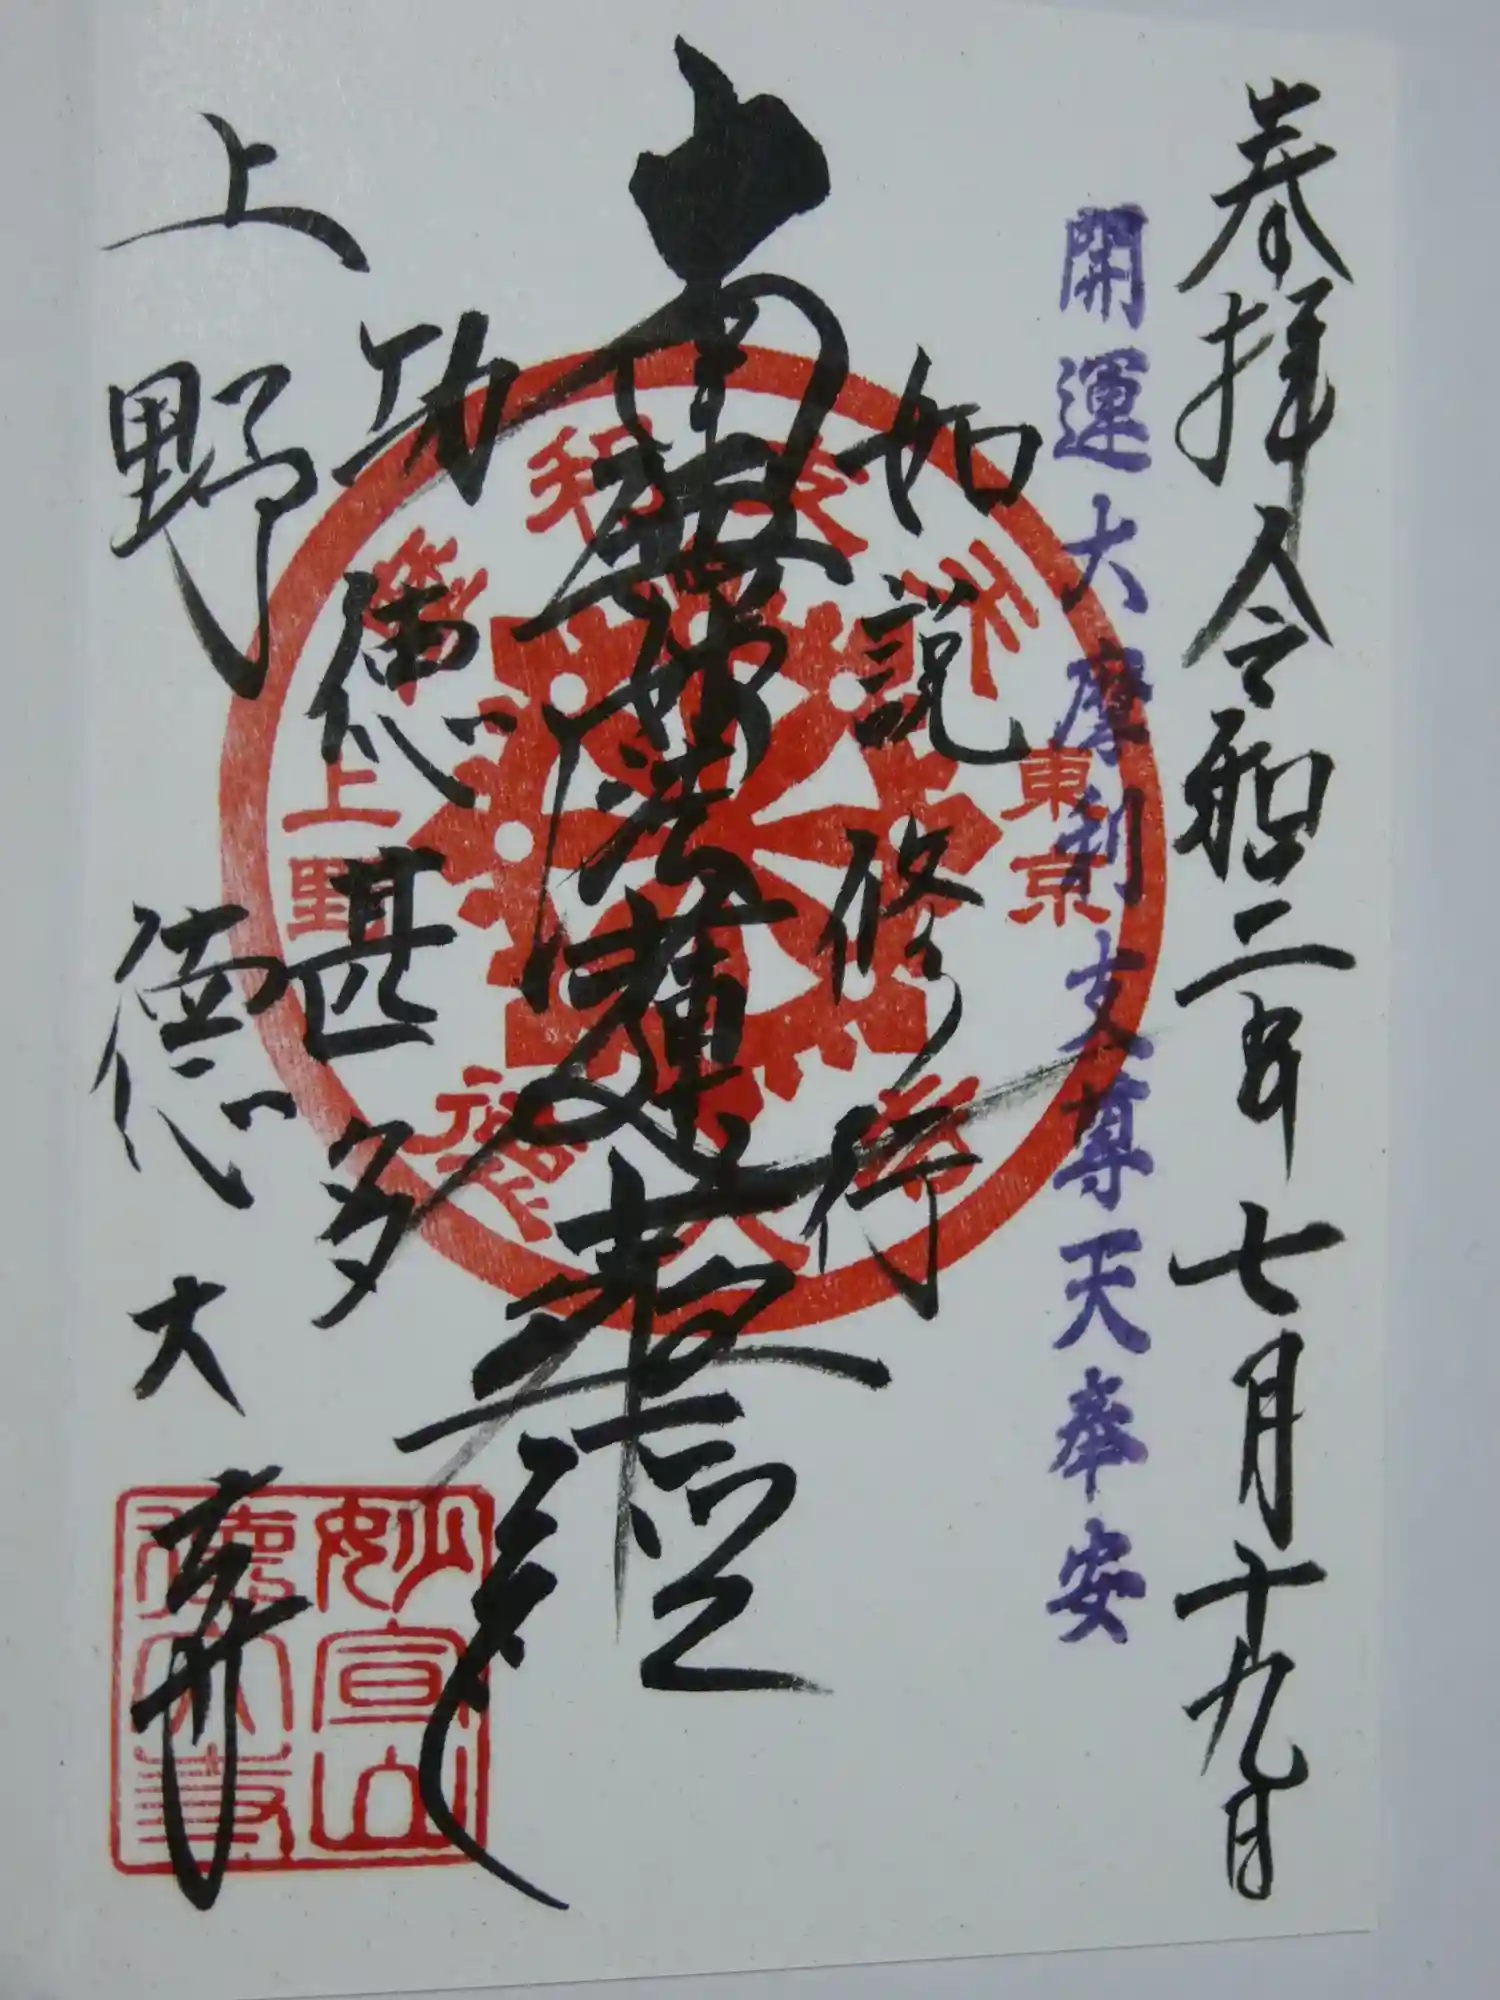 奉拝 令和二年 七月十九日
開運大摩利支尊天奉安
如説修行
南無妙法蓮華経
功徳甚多
上野 徳大寺
東京
上野
妙宣山
徳大寺